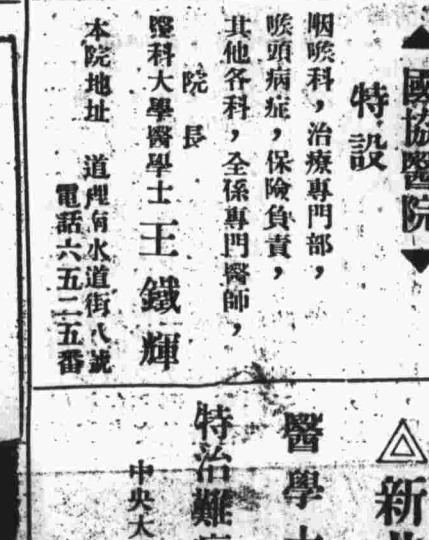 ▲國協醫院▼
特設
咽喉科，治療專門部，
喉頭病症，保險負責，
其他各科，全係專門醫師，
院長
醫科大學醫學士 王鐵輝
本院地址 道裡商水道街八號
電話六五二五番
新
醫學
特治難
中央大